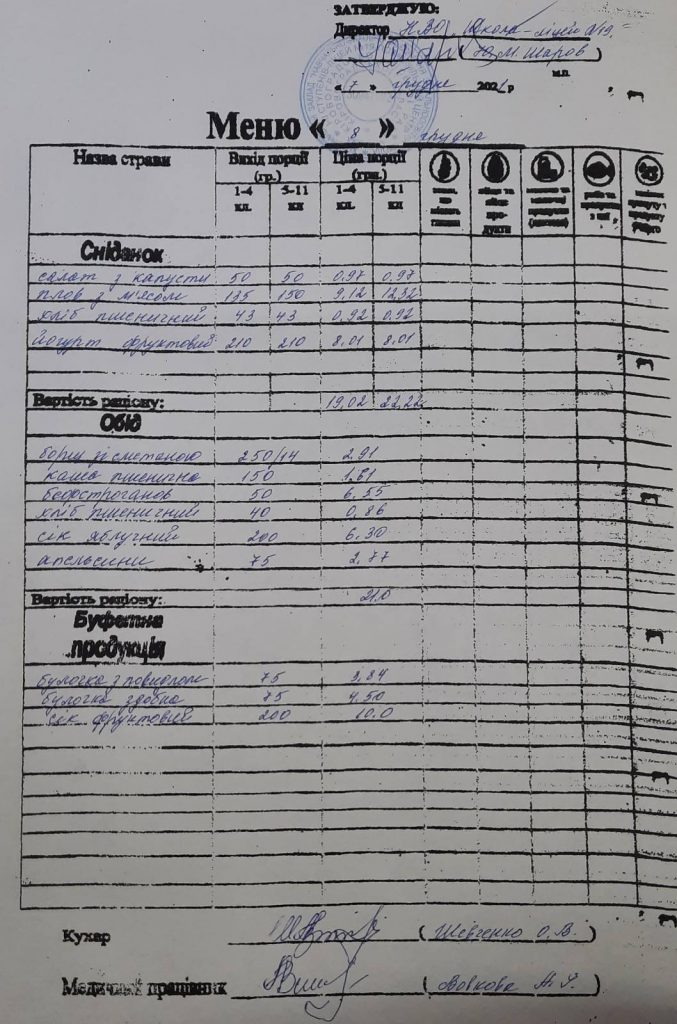 ЗАТВЕРДЖУЮ:
Директор НВО Школа-ліцей №19
( Ю.М. Шаров )
м.п.
« 7 » грудне 2021 р
Меню « 8 » грудне
Назва страви Вихід порції (гр.) Ціна порції (грн.)
1-4 кл. 5-11 кл 1-4 кл. 5-11 кл
Сніданок
салат з капусти 50 50 0,97 0,97
плов з м'ясом 135 150 9,12 12,32
хліб пшеничний 43 43 0,92 0,92
йогурт фруктовий 210 210 8.01 8.01
Вартість раціону: 19,02 22,22
Обід
борщ зі сметаною 250/14 2,91
каша пшенична 150 1,61
бефстроганов 50 6.55
хліб пшеничний 40 0,86
сік яблучний 200 6.30
апельсини 75 2,77
Вартість раціону: 21.0
Буфетна
продукція
булочка з повидлом 75 3,84
булочка здобна 75 4.50
сік фруктовий 200 10.0
Кухар ( Шевченко О.В. )
Медичний працівник ( Вовкова )